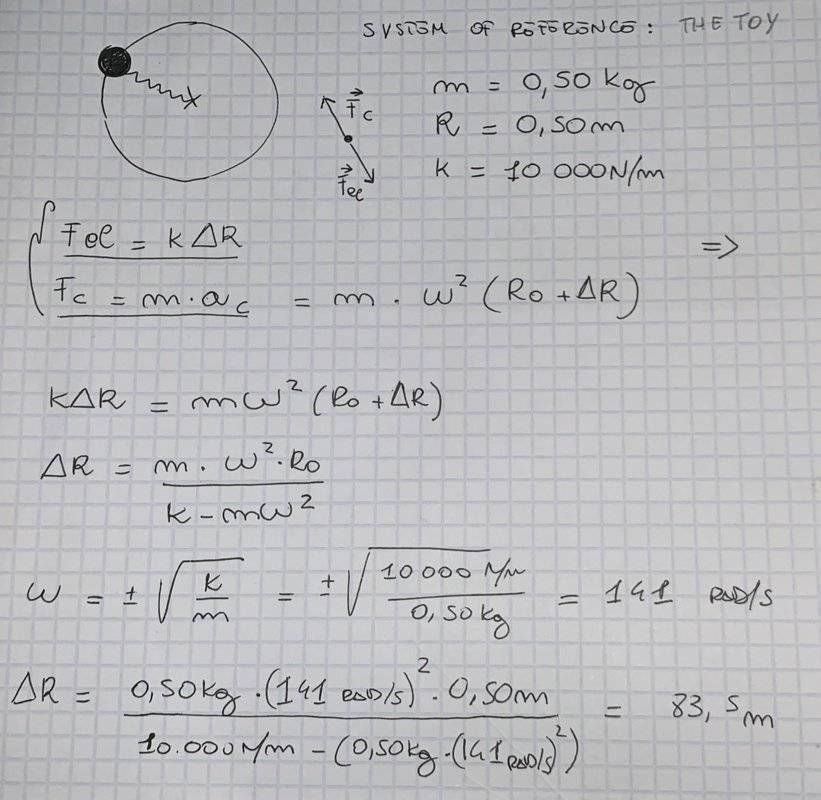 SYSTEM OF REFERENCE: THE TOY
m = 0,50 kg
R = 0,50m
K = 10 000N/m
F⃗c
F⃗el
Fel = K ΔR
=>
Fc = m·ac = m · ω² (Ro + ΔR)
KΔR = mω² (Ro + ΔR)
ΔR = m · ω²·Ro / K - mω²
ω = ± √K/m = ± √10 000 N/m / 0,50 kg = 141 RAD/s
ΔR = 0,50kg ·(141 RAD/s)² · 0,50m / 10.000N/m - (0,50kg·(141RAD/s)²) = 83,5m